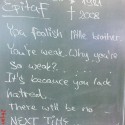 Epitaf
You foolish little brother.
You're weak. Why you're
so weak?
It's because you lack
hatred.
There will be no
NEXT TIME